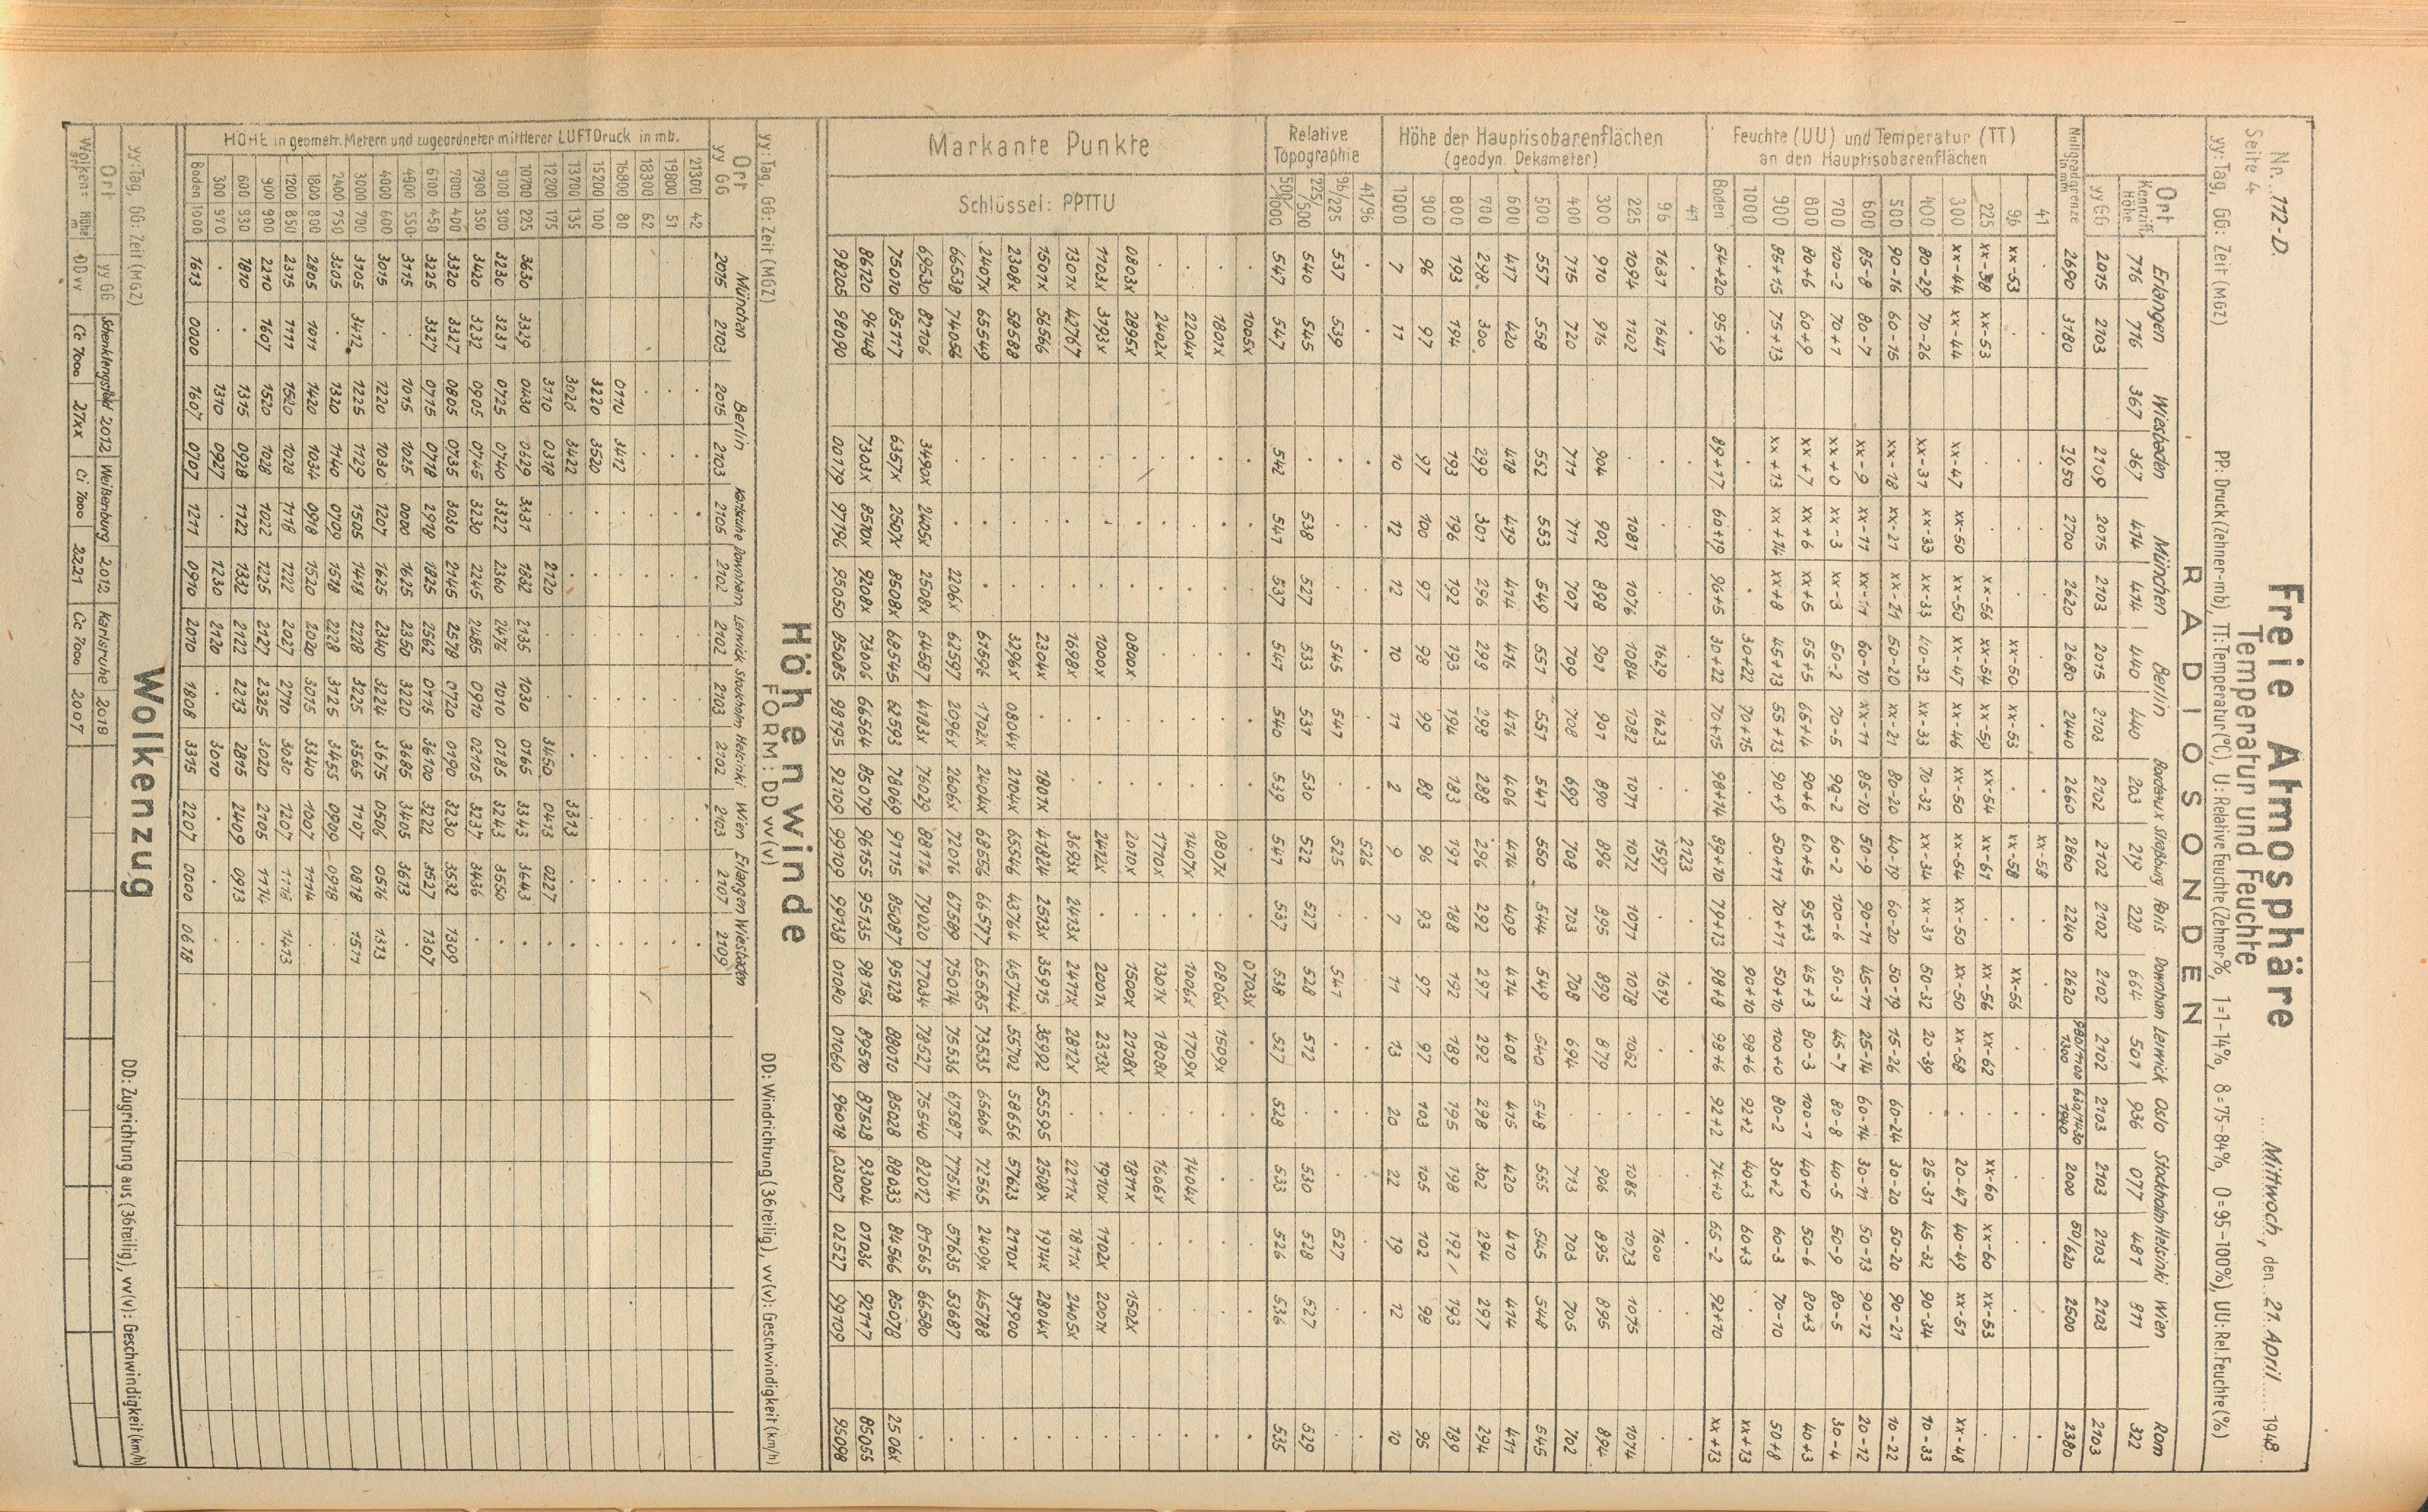 Nr. 112-D. Freie Atmosphäre Mittwoch, den 21. April 1948
Seite 4 Temperatur und Feuchte
yy: Tag, GG: Zeit (MGZ) PP: Druck (Zehner-mb), TT: Temperatur (°C), U: Relative Feuchte (Zehner %, 1=1-14%, 8=75-84%, 0=95-100%), UU: Rel. Feuchte (%)
RADIOSONDEN
Ort Erlangen Wiesbaden München Berlin Bordeaux Straßburg Paris Downham Lerwick Oslo Stockholm Helsinki Wien Rom
Kennziff. Höhe 716 716 367 367 414 414 440 440 203 219 228 664 501 936 077 481 811 322
yy GG 2015 2103 2109 2015 2103 2015 2103 2102 2102 2102 2102 2102 2103 2103 2103 2103 2103
Nullgradgrenze in m 2690 3180 2950 2700 2620 2680 2440 2660 2860 2240 2620 980/1100 1300 630/1430 1940 2000 50/620 2500 2380
Feuchte (UU) und Temperatur (TT) an den Hauptisobarenflächen
41 . . . . . . . . xx-58 . . . . . . . .
96 xx-53 . . . . xx-50 xx-53 . xx-58 . xx-56 . . . . . .
225 xx-58 xx-53 . . xx-56 xx-54 xx-59 xx-54 xx-61 . xx-56 xx-62 . xx-60 xx-60 xx-53 .
300 xx-44 xx-44 xx-47 xx-50 xx-50 xx-47 xx-46 xx-50 xx-54 xx-50 xx-50 xx-58 . 20-47 40-49 xx-51 xx-48
400 80-29 70-26 xx-31 xx-33 xx-33 40-32 xx-33 70-32 xx-34 xx-31 50-32 20-39 . 25-31 45-32 90-34 10-33
500 90-16 60-15 xx-18 xx-21 xx-21 50-20 xx-21 80-20 40-19 60-20 50-19 15-26 60-24 30-20 50-20 90-21 10-22
600 85-8 80-7 xx-9 xx-11 xx-11 60-10 xx-11 85-10 50-9 90-11 45-11 25-14 60-14 30-11 50-13 90-12 20-12
700 100-2 70+1 xx+0 xx-3 xx-3 50-2 70-5 99-2 60-2 100-6 50-3 45-7 80-8 40-5 50-9 80-5 30-4
800 80+6 60+9 xx+7 xx+6 xx+5 55+5 65+4 90+6 60+5 95+3 45+3 80-3 100-1 40+0 50-6 80+3 40+3
900 85+15 75+13 xx+13 xx+14 xx+8 45+13 55+13 90+9 50+11 70+11 50+10 100+0 80-2 30+2 60-3 70-10 50+8
1000 . . . . . 30+22 70+15 . . . 90+10 98+6 92+2 40+3 60+3 . xx+13
Boden 54+20 95+9 89+17 60+19 96+5 30+22 70+15 98+14 89+10 79+13 98+8 98+6 92+2 74+0 65-2 92+10 xx+13
Höhe der Hauptisobarenflächen (geodyn. Dekameter)
41 . . . . . . . . 2123 . . . . . . . .
96 1637 1647 . . . 1629 1623 . 1597 . 1619 . . . 1600 . .
225 1094 1102 . 1081 1076 1084 1082 1071 1072 1071 1078 1052 . 1085 1073 1075 1074
300 910 916 904 902 898 901 901 890 896 895 899 879 . 906 895 895 894
400 715 720 711 711 707 709 708 699 708 703 708 694 . 713 703 705 702
500 557 558 552 553 549 551 551 541 550 544 549 540 548 555 545 548 545
600 417 420 418 419 414 416 416 406 414 409 414 408 415 420 410 414 411
700 298 300 299 301 296 298 298 288 296 292 297 292 298 302 294 297 294
800 193 194 193 196 192 193 194 183 191 188 192 189 195 198 192 193 189
900 96 97 97 100 97 98 99 88 96 93 97 97 103 105 102 98 95
1000 7 11 10 12 12 10 11 2 9 7 11 13 20 22 19 12 10
Relative Topographie
41/96 . . . . . . . . 526 . . . . . . . .
96/225 537 539 . . . 545 541 . 525 . 541 . . . 527 . .
225/500 540 545 . 538 527 533 531 530 522 527 528 512 . 530 528 527 529
500/1000 547 547 542 541 537 541 540 539 541 537 538 527 528 533 526 536 535
Markante Punkte
Schlüssel: PPTTU
. 1005x . . . . . . . . 0703x . . . . . .
. 1801x . . . . . . 0807x . 0806x 1509x . . . . .
. 2204x . . . . . . 1407x . 1006x 1709x . 1404x . . .
. 2402x . . . . . . 1710x . 1301x 1808x . 1606x . . .
0803x 2895x . . . 0800x . . 2010x . 1500x 2108x . 1811x . 1502x .
1103x 3193x . . . 1000x . . 2412x . 2001x 2313x . 1910x 1102x 2001x .
1301x 42767 . . . 1698x . . 3693x 2413x 2411x 2812x . 2211x 1811x 2405x .
1501x 56566 . . . 2304x . 1801x 41824 2513x 35915 35992 55595 2508x 1914x 2804x .
2308x 58588 . . . 3296x 0804x 2104x 65546 43764 45744 55702 58656 57623 2110x 37900 .
2407x 65549 . . . 61596 1702x 2404x 68556 66577 65585 73535 65606 72565 2409x 45788 .
66538 74056 . . 2206x 62597 2096x 2606x 72016 67589 75014 75536 67587 77514 57635 53687 .
69530 82106 3490x 2405x 2508x 64587 4183x 76029 88116 79020 77034 78527 75540 82012 81565 66580 .
75010 85117 6357x 2507x 8508x 68545 62593 78069 91115 85087 95128 88010 85028 88033 84566 85078 2506x
86120 96148 7303x 8510x 9208x 73006 66564 85079 96155 95135 98156 89510 87528 93004 01036 92117 85055
98205 98090 00179 97196 95050 85085 99195 92109 99109 99138 01080 01060 96018 03007 02527 99109 95098
Höhenwinde
FORM: DDvv(v)
yy: Tag, GG: Zeit (MGZ) DD: Windrichtung (36teilig), vv(v): Geschwindigkeit (km/h)
Ort München Berlin Karlsruhe Downham Lerwick Stockholm Helsinki Wien Erlangen Wiesbaden
yy GG 2015 2103 2015 2103 2105 2102 2102 2103 2102 2103 2107 2109
HÖHE in geometr. Metern und zugeordneter mittlerer LUFTDruck in mb.
21300 42
19800 51
18300 62
16800 80 0110 3412
15200 100 3220 3520
13700 135 3020 3422 3313
12200 175 3110 0318 2120 3450 0413 0227
10700 225 3630 3329 0430 0629 3331 1832 2135 1030 0165 3343 3643
9100 300 3230 3231 0725 0740 3322 2360 2476 1010 0185 3243 3550
7900 350 3420 3232 0905 0745 3230 2245 2485 0910 02105 3237 3436
7000 400 3320 3327 0805 0735 3030 2145 2579 0720 0190 3230 3532 1309
6100 450 3225 3327 0715 0718 2918 1825 2562 0715 36100 3222 3527 1307
4900 550 3115 . 1015 1025 0000 1625 2350 3220 3685 3405 3613 .
4000 600 3015 . 1220 1030 1207 1625 2340 3224 3675 0506 0516 1313
3000 700 3105 3412 1225 1129 1505 1418 2228 3225 3565 1107 0818 1511
2400 750 3205 . 1320 1140 0709 1518 2228 3125 3455 0900 0918 .
1800 800 2805 1011 1420 1034 0918 1520 2020 3015 3340 1007 1114 .
1200 850 2315 1111 1520 1028 1118 1222 2027 2710 3030 1207 1116 1413
900 900 2210 1607 1520 1028 1022 1225 2127 2325 3020 2105 1114 .
600 930 1810 . 1315 0928 1122 1332 2122 2213 2815 2409 0913 .
300 970 . . 1310 0927 . 1230 2120 . 3010 . . .
Boden 1000 1613 0000 1607 0707 1211 0910 2010 1808 3315 2207 0000 0618
Wolkenzug
yy: Tag, GG: Zeit (MGZ) DD: Zugrichtung aus (36teilig), vv(v): Geschwindigkeit (km/h)
Ort yy GG Schenklengsfeld 2012 Weißenburg 2012 Karlsruhe 2018
Wolken= Höhe m DDvv Cc 7000 27xx Ci 7000 2221 Cc 7000 2007